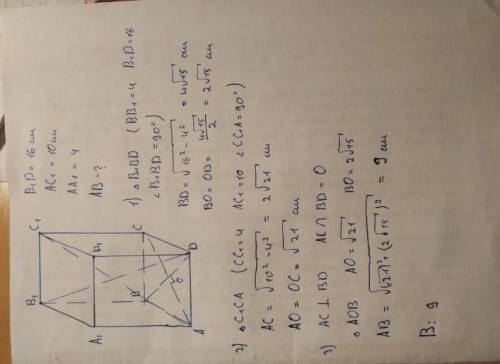 B₁D = 16 см
AC₁ = 10 см
AA₁ = 4
AB - ?
B₁
C₁
A₁
D₁
B
C
O
A
D
1) △ B₁BD (BB₁ = 4 B₁D = 16
∠B₁BD = 90°)
BD = √16² - 4² = 4√15 см
BO = OD = 4√15/2 = 2√15 см
2) △ C₁CA (CC₁ = 4 AC₁ = 10 ∠CC₁A = 90°)
AC = √10² - 4² = 2√21 см
AO = OC = √21 см
3) AC ⊥ BD AC ∩ BD = O
△ AOB AO = √21 BO = 2√15
AB = √(√21)² + (2√15)² = 9 см
В: 9